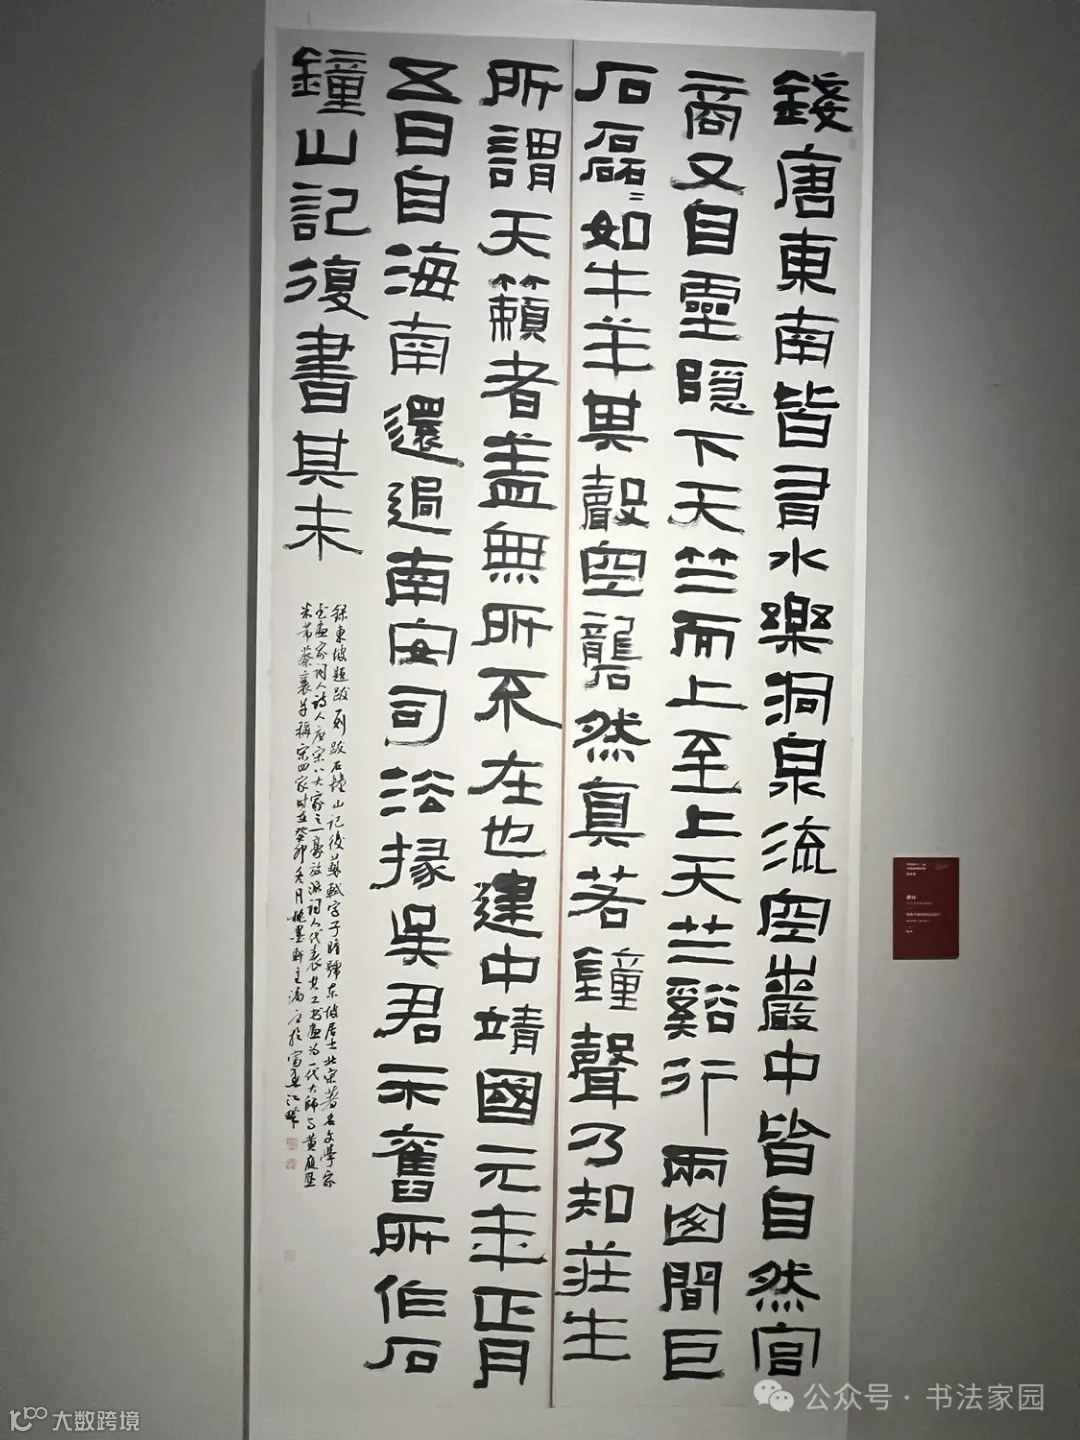 錢唐東南皆有水樂洞泉流空巖中皆自然宮
商又自靈隱下天竺而上至上天竺谿行兩間巨
石磊〻如牛羊其聲空礱然真若鐘聲乃知莊生
所謂天籟者蓋無所不在也建中靖國元年正月
五日自海南還過南安司法掾吳君示舊所作石
鐘山記復書其末
錄東坡題跋一則跋石鐘山記後蘇軾字子瞻號東坡居士北宋著名文學家
書畫家詞人詩人唐宋八大家之一豪放派詞人代表其工书画为一代大師与黄庭坚
米芾蔡襄并稱宋四家时在癸卯冬月墨軒主於富春江畔
公众号 · 书法家园
大数跨境